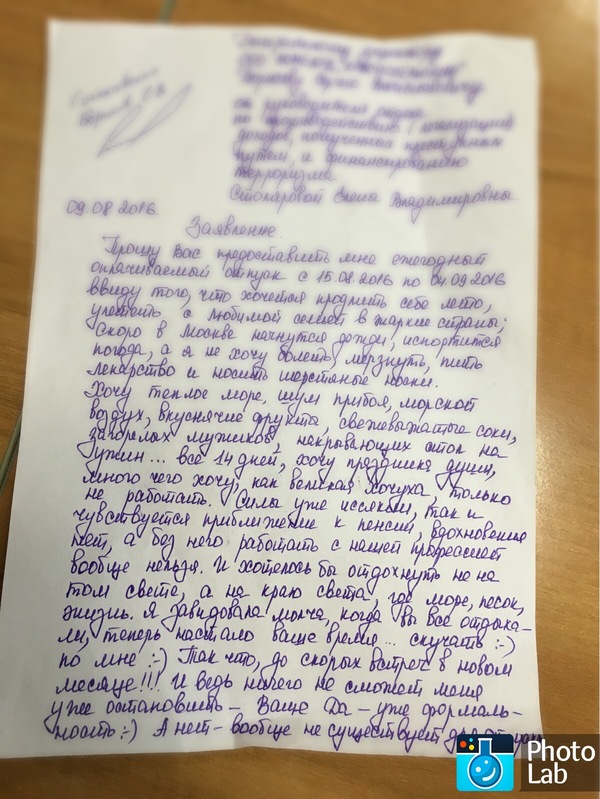 от руководителя отдела
по противодействию (легализации)
доходов, полученных преступным
путем, и финансированию
терроризма
Столяровой Елены Владимировны
09.08.2016.
Заявление
Прошу Вас предоставить мне ежегодный
оплачиваемый отпуск с 15.08.2016 по 04.09.2016
ввиду того, что хочется продлить себе лето,
улететь с любимой семьей в жаркие страны;
Скоро в Москве начнутся дожди, испортится
погода, а я не хочу болеть, мерзнуть, пить
лекарство и носить шерстяные носки.
Хочу теплое море, шум прибоя, морской
воздух, вкуснячие фрукты, свежевыжатые соки,
загорелых мужиков, накрывающих стол на
ужин... все 14 дней, хочу праздника души,
много чего хочу, как великая хочуха, только
не работать. Силы уже иссякли, так и
чувствуется приближение к пенсии, вдохновения
нет, а без него работать с нашей профессией
вообще нельзя. И хотелось бы отдохнуть не на
том свете, а на краю света, где море, песок,
жизнь. Я завидовала молча, когда вы все отдыха-
ли, теперь настало ваше время... скучать :-)
по мне :-) Так что, до скорых встреч в новом
месяце!!! И ведь ничего не сможет меня
уже остановить - Ваше Да - уже формаль-
ность :-) А нет - вообще не существует для
Photo
Lab